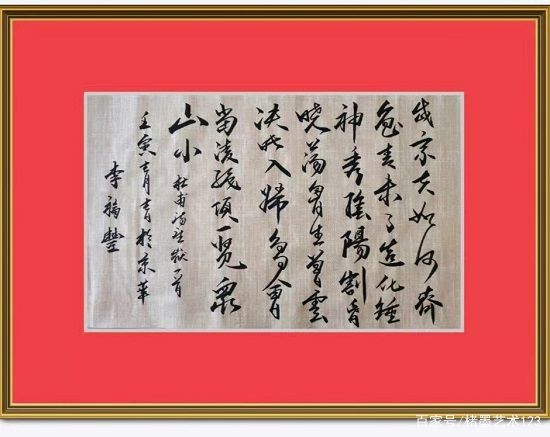 岱宗夫如何齊
魯青未了造化鍾
神秀陰陽割昏
曉蕩胷生曾雲
決眥入歸鳥會
當凌絶頂一覽眾
山小 杜甫詩望嶽一首
壬寅 於京華
李福豐
百家号/楮墨艺术123